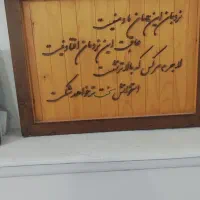 نردبان این جهان ما و منیست
عاقبت این نردبان افتادنیست
لاجرم هر کس که بالاتر نشست
استخوانش سخت تر خواهد شکست